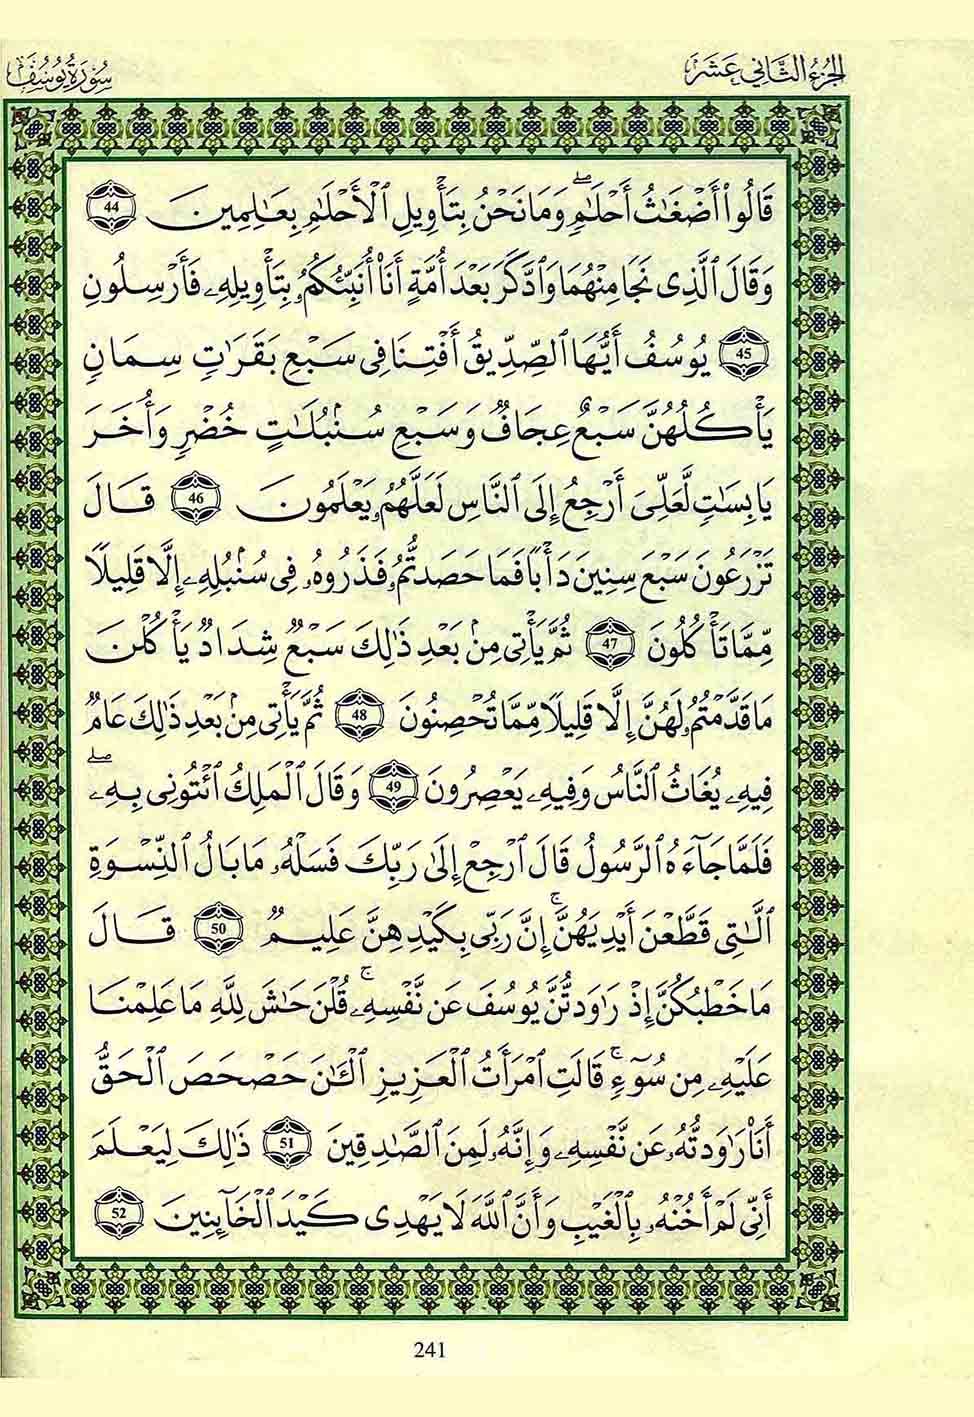 الجزء الثاني عشر
سورة يوسف
قَالُوٓا۟ أَضْغَٰثُ أَحْلَٰمٍۢ ۖ وَمَا نَحْنُ بِتَأْوِيلِ ٱلْأَحْلَٰمِ بِعَٰلِمِينَ 44
وَقَالَ ٱلَّذِى نَجَا مِنْهُمَا وَٱدَّكَرَ بَعْدَ أُمَّةٍ أَنَا۠ أُنَبِّئُكُم بِتَأْوِيلِهِۦ فَأَرْسِلُونِ
45 يُوسُفُ أَيُّهَا ٱلصِّدِّيقُ أَفْتِنَا فِى سَبْعِ بَقَرَٰتٍ سِمَانٍ
يَأْكُلُهُنَّ سَبْعٌ عِجَافٌ وَسَبْعِ سُنۢبُلَٰتٍ خُضْرٍ وَأُخَرَ
يَابِسَٰتٍ لَّعَلِّىَ أَرْجِعُ إِلَى ٱلنَّاسِ لَعَلَّهُمُۥ يَعْلَمُونَ 46 قَالَ
تَزْرَعُونَ سَبْعَ سِنِينَ دَأْبًا فَمَا حَصَدتُّمُۥ فَذَرُوهُۥ فِى سُنۢبُلِهِۦٓ إِلَّا قَلِيلًا
مِّمَّا تَأْكُلُونَ 47 ثُمَّ يَأْتِى مِنۢ بَعْدِ ذَٰلِكَ سَبْعٌ شِدَادٌ يَأْكُلْنَ
مَا قَدَّمْتُمُۥ لَهُنَّ إِلَّا قَلِيلًا مِّمَّا تُحْصِنُونَ 48 ثُمَّ يَأْتِى مِنۢ بَعْدِ ذَٰلِكَ عَامٌ
فِيهِۦ يُغَاثُ ٱلنَّاسُ وَفِيهِۦ يَعْصِرُونَ 49 وَقَالَ ٱلْمَلِكُ ٱئْتُونِى بِهِۦ ۖ
فَلَمَّا جَآءَهُ ٱلرَّسُولُ قَالَ ٱرْجِعْ إِلَىٰ رَبِّكَ فَسَلْهُۥ مَا بَالُ ٱلنِّسْوَةِ
ٱلَّٰتِى قَطَّعْنَ أَيْدِيَهُنَّ ۚ إِنَّ رَبِّى بِكَيْدِهِنَّ عَلِيمٌ 50 قَالَ
مَا خَطْبُكُنَّ إِذْ رَٰوَدتُّنَّ يُوسُفَ عَن نَّفْسِهِۦ ۚ قُلْنَ حَٰشَ لِلَّهِ مَا عَلِمْنَا
عَلَيْهِۦ مِن سُوٓءٍ ۚ قَالَتِ ٱمْرَأَتُ ٱلْعَزِيزِ ٱلْـَٰٔنَ حَصْحَصَ ٱلْحَقُّ
أَنَا۠ رَٰوَدتُّهُۥ عَن نَّفْسِهِۦ وَإِنَّهُۥ لَمِنَ ٱلصَّٰدِقِينَ 51 ذَٰلِكَ لِيَعْلَمَ
أَنِّى لَمْ أَخُنْهُۥ بِٱلْغَيْبِ وَأَنَّ ٱللَّهَ لَا يَهْدِى كَيْدَ ٱلْخَآئِنِينَ 52
241